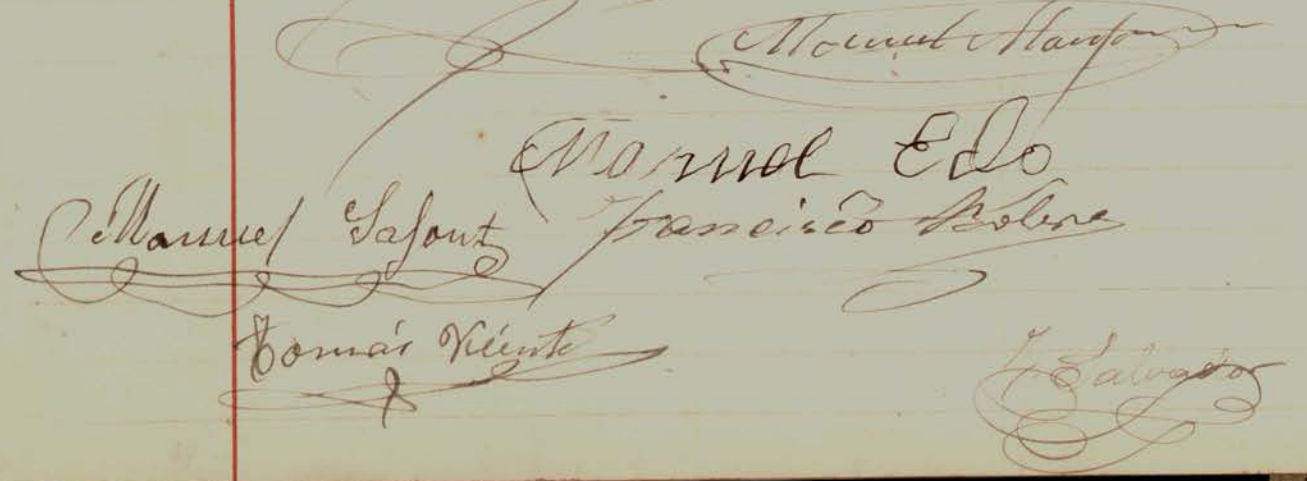 Manuel
Manuel Edo
Manuel Safont Francisco
Tomás Vicente
Salvador